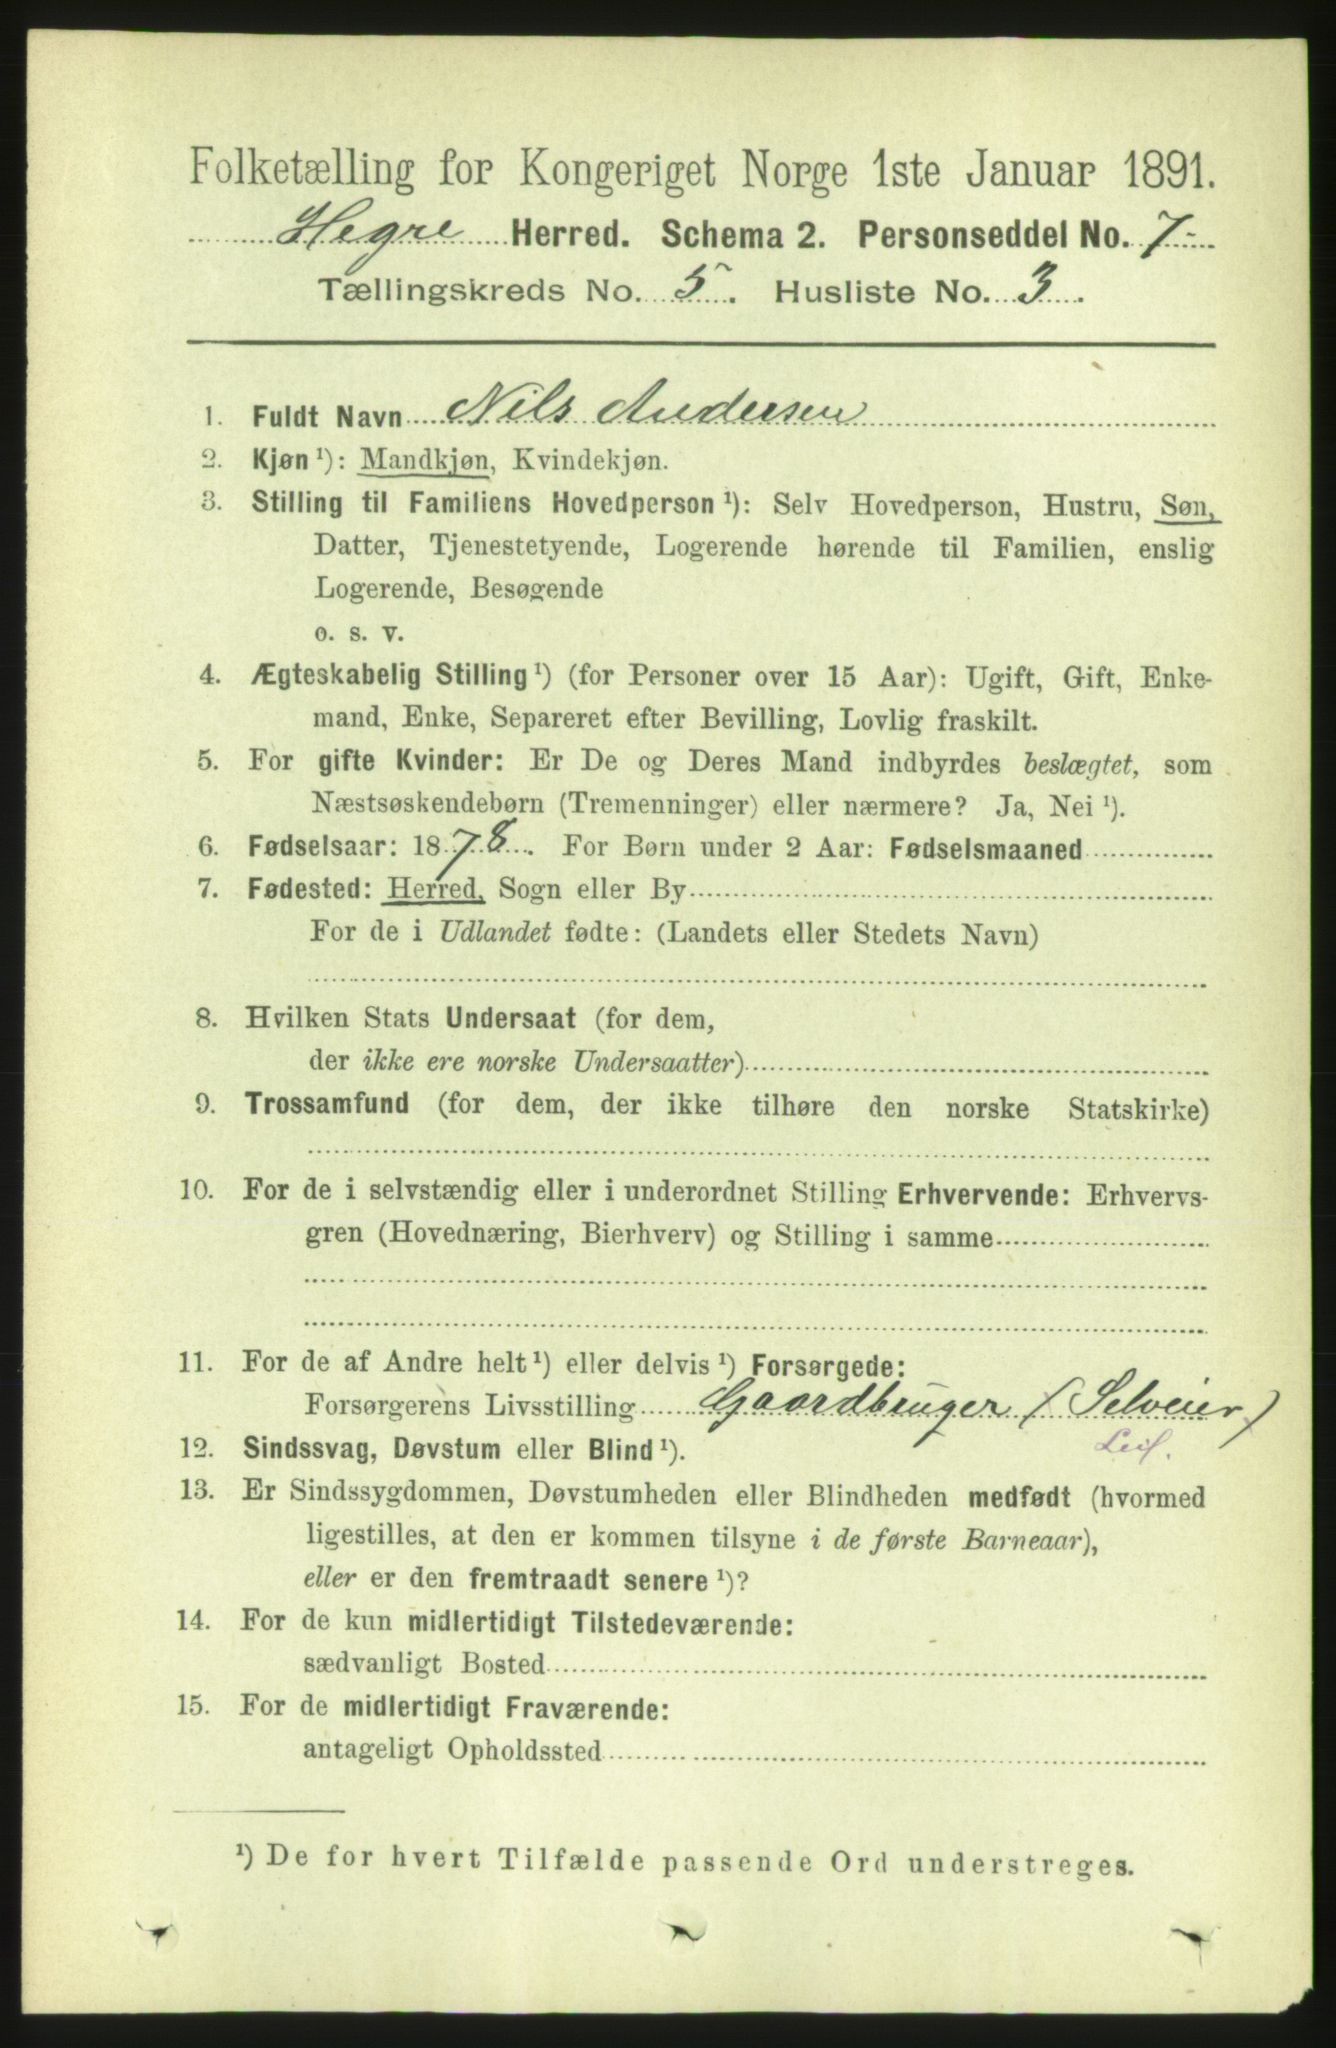 Folketælling for Kongeriget Norge 1ste Januar 1891.
Hegre Herred. Schema 2. Personseddel No. 7
Tællingskreds No. 5. Husliste No. 3.
1. Fuldt Navn Nils Andersen
2. Kjøn ¹): Mandkjøn, Kvindekjøn.
3. Stilling til Familiens Hovedperson ¹): Selv Hovedperson, Hustru, Søn,
Datter, Tjenestetyende, Logerende hørende til Familien, enslig
Logerende, Besøgende
o. s. v.
4. Ægteskabelig Stilling ¹) (for Personer over 15 Aar): Ugift, Gift, Enke-
mand, Enke, Separeret efter Bevilling, Lovlig fraskilt.
5. For gifte Kvinder: Er De og Deres Mand indbyrdes beslægtet, som
Næstsøskendebørn (Tremenninger) eller nærmere? Ja, Nei ¹).
6. Fødselsaar: 1878. For Børn under 2 Aar: Fødselsmaaned
7. Fødested: Herred, Sogn eller By
For de i Udlandet fødte: (Landets eller Stedets Navn)
8. Hvilken Stats Undersaat (for dem,
der ikke ere norske Undersaatter)
9. Trossamfund (for dem, der ikke tilhøre den norske Statskirke)
10. For de i selvstændig eller i underordnet Stilling Erhvervende: Erhvervs-
gren (Hovednæring, Bierhverv) og Stilling i samme
11. For de af Andre helt ¹) eller delvis ¹) Forsørgede:
Forsørgerens Livsstilling Gaardbruger (Selveier)
12. Sindssvag, Døvstum eller Blind ¹).
13. Er Sindssygdommen, Døvstumheden eller Blindheden medfødt (hvormed
ligestilles, at den er kommen tilsyne i de første Barneaar),
eller er den fremtraadt senere ¹)?
14. For de kun midlertidigt Tilstedeværende:
sædvanligt Bosted
15. For de midlertidigt Fraværende:
antageligt Opholdssted
¹) De for hvert Tilfælde passende Ord understreges.